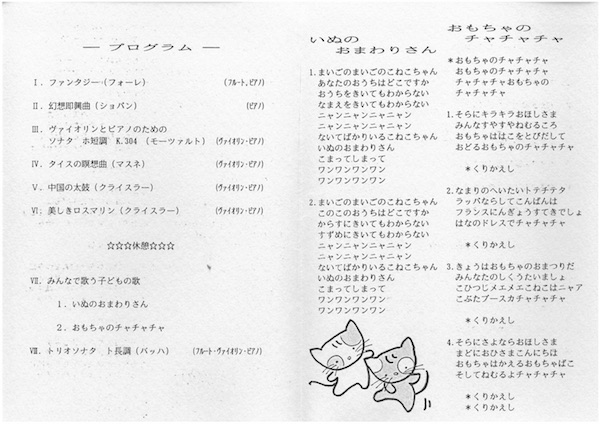 ― プログラム ―
Ⅰ. ファンタジー(フォーレ) (フルート,ピアノ)
Ⅱ. 幻想即興曲(ショパン) (ピアノ)
Ⅲ. ヴァイオリンとピアノのための
ソナタ ホ短調 K.304 (モーツァルト) (ヴァイオリン・ピアノ)
Ⅳ. タイスの瞑想曲(マスネ) (ヴァイオリン・ピアノ)
Ⅴ. 中国の太鼓(クライスラー) (ヴァイオリン・ピアノ)
Ⅵ. 美しきロスマリン(クライスラー) (ヴァイオリン・ピアノ)
☆☆☆休憩☆☆☆
Ⅶ. みんなで歌う子どもの歌
1. いぬのおまわりさん
2. おもちゃのチャチャチャ
Ⅷ. トリオソナタ ト長調(バッハ) (フルート・ヴァイオリン・ピアノ)
いぬの
おまわりさん
1.まいごのまいごのこねこちゃん
あなたのおうちはどこですか
おうちをきいてもわからない
なまえをきいてもわからない
ニャンニャンニャンニャン
ニャンニャンニャンニャン
ないてばかりいるこねこちゃん
いぬのおまわりさん
こまってしまって
ワンワンワンワン
ワンワンワンワン
2.まいごのまいごのこねこちゃん
このこのおうちはどこですか
からすにきいてもわからない
すずめにきいてもわからない
ニャンニャンニャンニャン
ニャンニャンニャンニャン
ないてばかりいるこねこちゃん
いぬのおまわりさん
こまってしまって
ワンワンワンワン
ワンワンワンワン
おもちゃの
チャチャチャ
*おもちゃのチャチャチャ
おもちゃのチャチャチャ
チャチャチャおもちゃの
チャチャチャ
1.そらにキラキラおほしさま
みんなすやすやねむるころ
おもちゃははこをとびだして
おどるおもちゃのチャチャチャ
*くりかえし
2.なまりのへいたいトテチテタ
ラッパならしてこんばんは
フランスにんぎょうすてきでしょ
はなのドレスでチャチャチャ
*くりかえし
3.きょうはおもちゃのおまつりだ
みんなたのしくうたいましょ
こひつじメエメエこねこはニャア
こぶたブースカチャチャチャ
*くりかえし
4.そらにさよならおほしさま
まどにおひさまこんにちは
おもちゃはかえるおもちゃばこ
そしてねむるよチャチャチャ
*くりかえし
*くりかえし